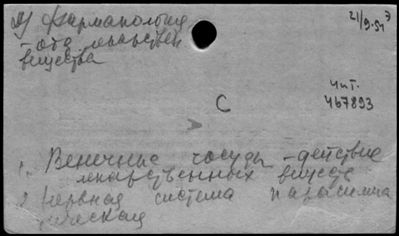 Фармакология
21/9.54
- отд. лекарствен
вещества
Чит.
467893
С
1. Венечные сосуды - действие
лекарственных веществ
2 Нервная система парасимпа
тическая